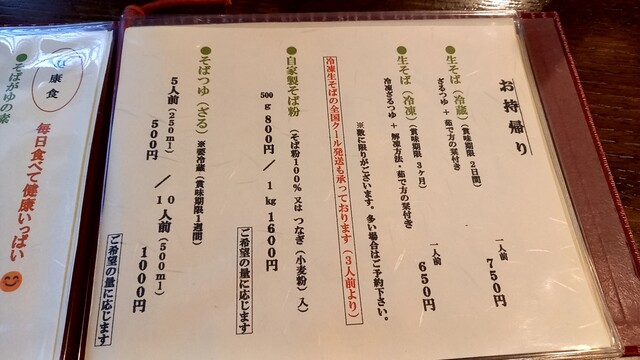 お持帰り
●生そば（冷蔵）（賞味期限 2日間）
ざるつゆ + 茹で方の栞付き
一人前 750円
●生そば（冷凍）（賞味期限 3ヶ月）
冷凍ざるつゆ + 解凍方法・茹で方の栞付き
一人前 650円
※数に限りがございます。多い場合はご予約下さい。
冷凍生そばの全国クール発送も承っております（3人前より）
●自家製そば粉（そば粉100% 又は つなぎ（小麦粉）入）
500g 800円 / 1kg 1600円
ご希望の量に応じます
●そばつゆ（ざる）※要冷蔵（賞味期限1週間）
5人前（250ml） / 10人前（500ml）
500円 1000円
ご希望の量に応じます
康食
●そばがゆの素
毎日食べて健康いっぱい